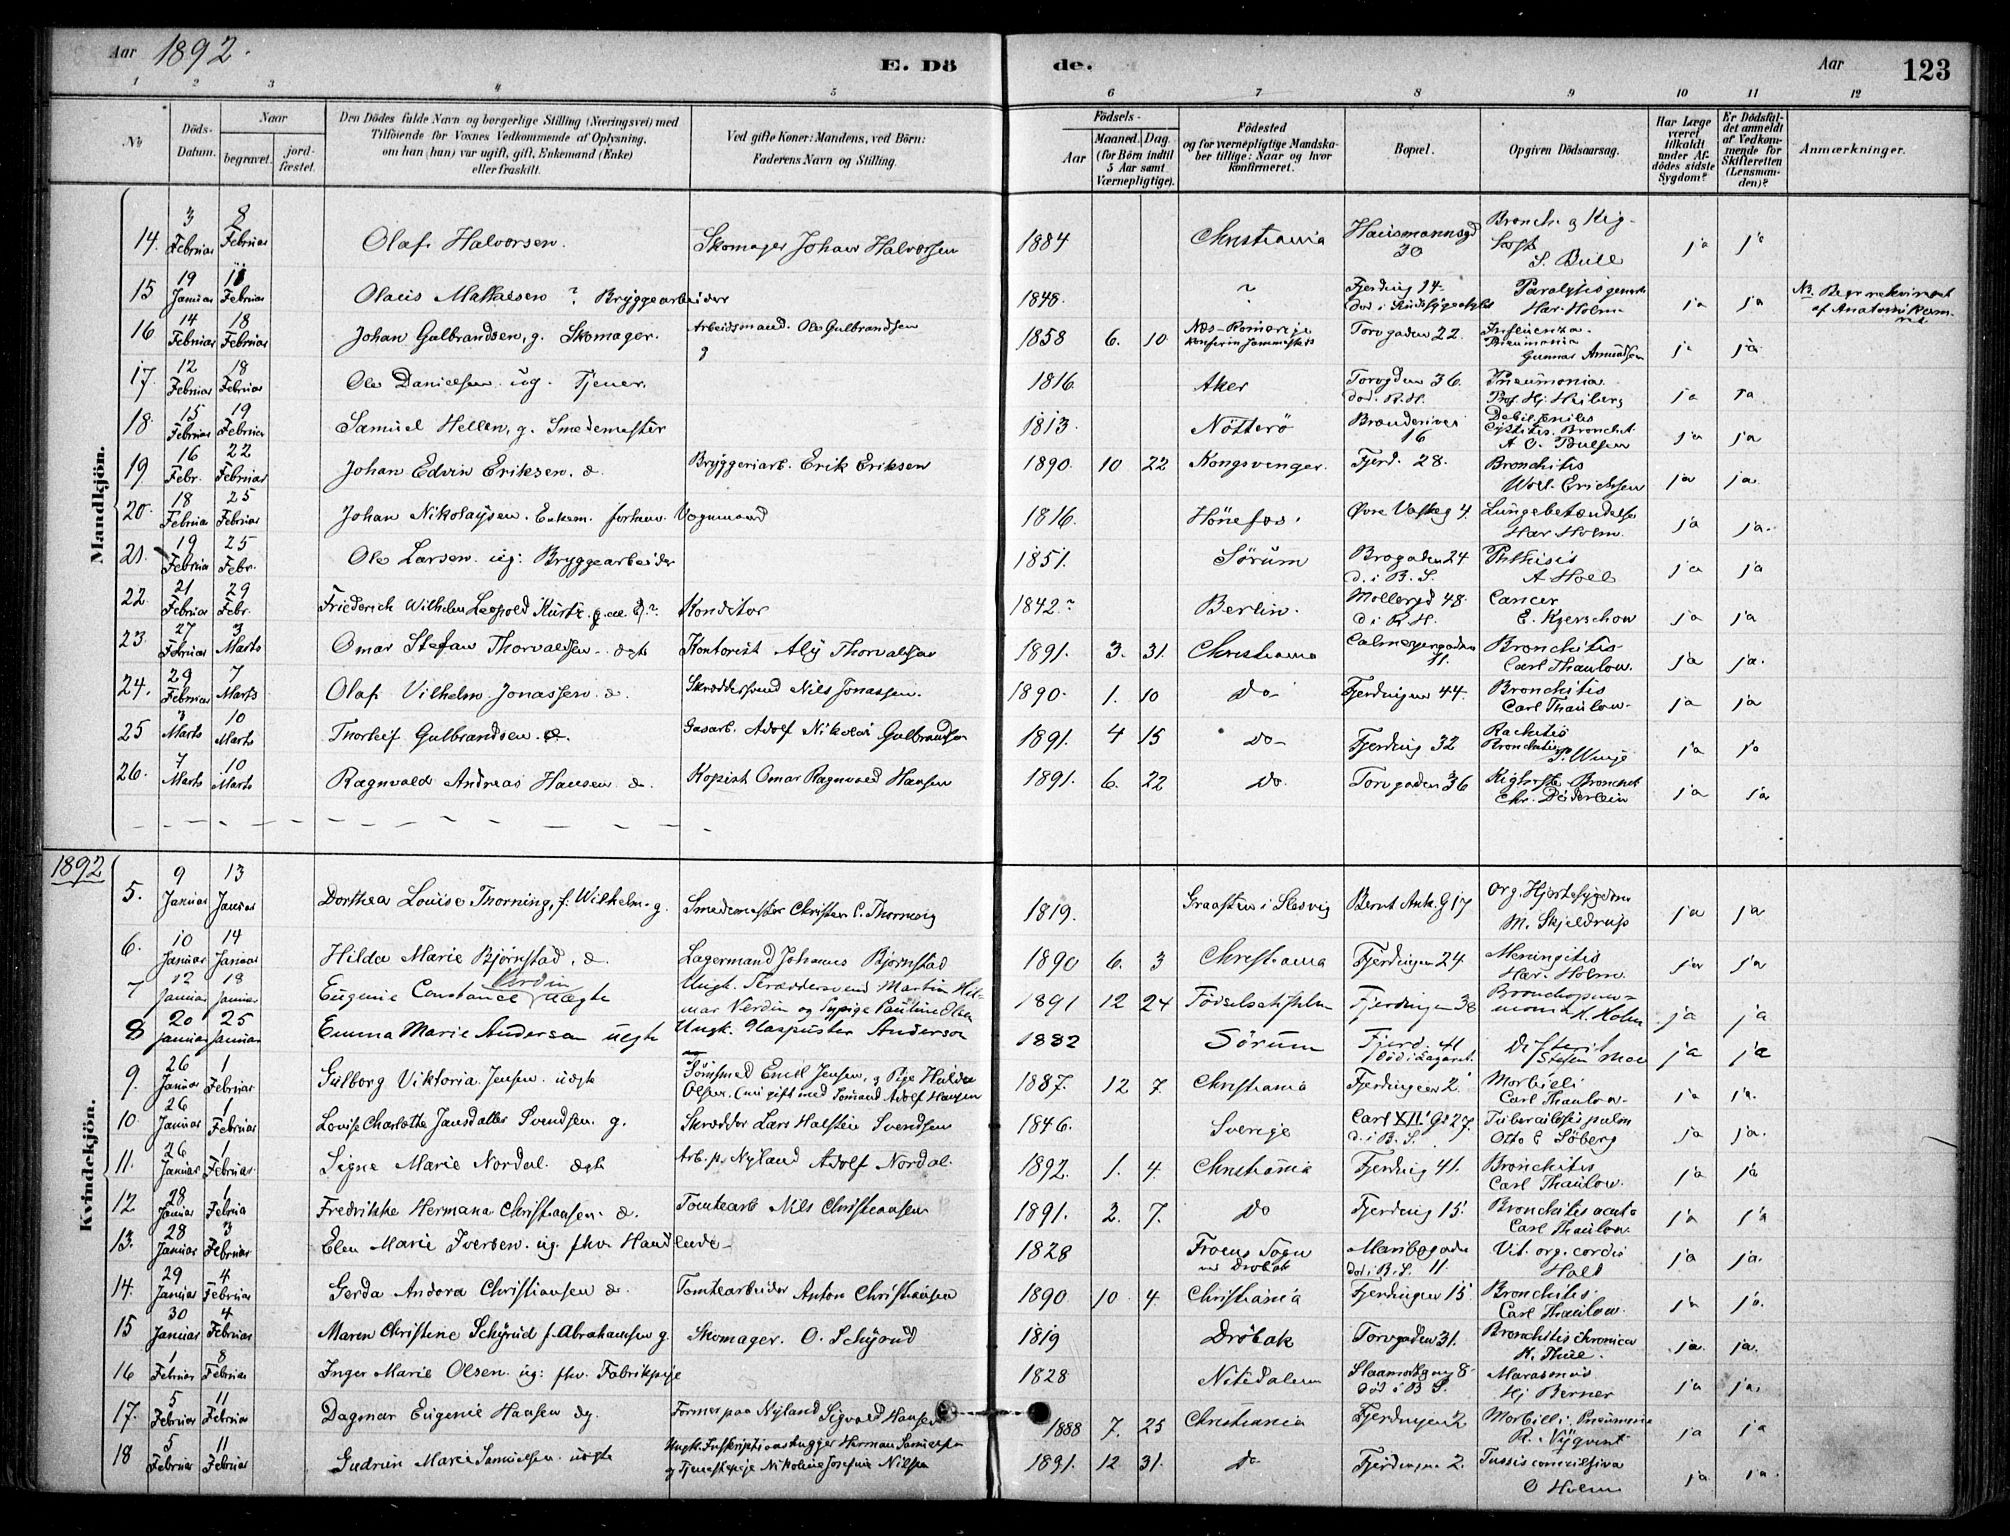 Aar 1892.
E. Dö de.
Aar 123
1 2 3 4 5 6 7 8 9 10 11 12
No
Döds-Datum.
Naar
begravet.
jord-fæstet.
Den Dödes fulde Navn og borgerlige Stilling (Næringsvei) med
Tilföiende for Voxnes Vedkommende af Oplysning,
om han (hun) var ugift, gift, Enkemand (Enke)
eller fraskilt.
Ved gifte Koner: Mandens, ved Börn:
Faderens Navn og Stilling.
Födsels-
Aar
Maaned. Dag.
(for Börn indtil
5 Aar samt
Værnepligtige).
Födested
og for værnepligtige Mandska-
ber tillige: Naar og hvor
konfirmeret.
Bopæl.
Opgiven Dödsaarsag.
Har Læge
været
tilkaldt
under Af-
dödes sidste
Sygdom?
Er Dödsfal-
det anmeldt
af Vedkom-
mende for
Skifteretten
(Lensman-
den)?
Anmærkninger.
Mandkjön.
14. 3 Februar 8 Februar Olaf Halvorsen. Skomager Johan Halvorsen 1884 Christiania Hausmannsgd 30 Bronch. og Kighoste S. Bull ja ja
15 19 Januar Februar Olaus Mathisen ? Bryggearbeider 1848. ? Fjerding 14- Paralysis Har. Holm ja ja NB. Begr
16 14 Februar 18 Februar Johan Gulbrandsen, g. Skomager. Arbeidsmand. Ole Gulbrandsen 1858 6. 10 Næs-Romerike Torvgaden 22. Influenza-Pneumonia Gunnar Amundsen ja ja
17. 12 Februar 18 Februar Ole Danielsen ug. Tjener. 1816. Aker Torvgden 36. död. R.H. Pneumonia Prof. Hj. Heiberg ja ja
18. 15 Februar 19 Februar Samuel Hellen, g. Smedemester 1813. Nötterö 16 Debil. senilis Cystitis. Bronchit ja ja
19 16 Febr. 22 Februar Johan Edvin Eriksen. d. Bryggeriarb. Erik Eriksen 1890. 10 22 Kongsvinger. Fjerd. 28. Bronchitis Erichsen ja ja.
20. 18 Februar 25 Februar Johan Nikolaysen. Enkem. forhenv. Vognmand 1816. Hönefos. Øvre 4. Lungebetændelse Har Holm ja ja.
21. 19 Februar 25 Febr. Ole Larsen. ug: Bryggearbeider 1851. Sörum Brogaden 24 d. i B.S. Phthisis A Holl ja ja
22. 21 Februar 29 Febr. Friederich Wilhelm Leopold Kurtz Konditor 1842? Berlin. Mollergd 48. d. i R.H. Cancer E. Kjerschow ja ja
23 27 Februar 3 Marts Omar Stefan Thorvaldsen. ægte Kontorist Thorvalsen 1891. 3. 31. Christiania Calmeyergaden 11. Bronchitis Carl Thaulow. ja ja.
24. 29 Februar 7 Marts Olaf Vilhelm Jonassen d. Skræddersvend Nils Jonassen. 1890. 1. 10 Do- Fjerdingen 44. Bronchitis Carl Thaulow. ja ja
25 3 Marts 10 Marts Thorleif Gulbrandsen. d. Gasarb. Adolf Nikolai Gulbrandsen 1891. 4 15 Do- Fjerding 32 Rachitis Bronchitis ja ja
26. 7 Marts 10 Marts Ragnvald Andreas Hansen d. Kopist Omar Ragnvald Hansen 1891. 6. 22 Do. Torvgaden 36 Kighoste-Bronchit Chr. Döderlein ja ja
1892
Kvindekjön.
5. 9 Januar 13 Januar Dorthea Louise Thorning, f. Wilhelm. g. Smedemester Christen C. Thorning 1819. Graasten i Slesvig Bernt Ank. G 17 org. Hjertesygdom M. Skjeldrup ja ja
6. 10 Januar 14 Januar Hilda Marie Bjørnstad. d. Lagermand Johannes Bjørnstad 1890 6. 3 Christiania Fjerdingen 24. Meningitis Har. Holm ja ja
7 12 Januar 18 Januar Eugenie Constance Verdin Uægte Ungk. Skræddersvend Martin Hilmar Verdin og Sypige Pauline Olsen 1891 12 24 Födselsstiftelsen Fjerdingen 38 Bronchopneumonia K. Holm ja ja
8 20 Januar 25 Januar Emma Marie Anderson uægte Ungk. Glaspuster Anderson 1882 Sörum Fjerd. 41 Död i Lazaret. Moe ja ja
9. 26 Januar 1 Februar Gulborg Viktoria Jensen uægte Tömsmed Emil Jensen, og Pige Hulda Olsen. (nu gift med Sömand Adolf Hansen 1887. 12 7. Christiania Fjerdingen 2. Morbilli Carl Thaulow. ja ja.
10 26 Januar 1 Februar Louise Charlotte Jansdatter Svendsen. g. Skrædder Lars Halsten Svendsen 1846. Sverige Carl XII Gd 27. d. i B.S. Tuberculosis pulm Otto E Söberg ja ja.
11. 26 Januar 1 Februar Signe Marie Nordal. ægte Arb. p. Nyland Adolf Nordal. 1892. 1. 4. Christiania Fjerding 41. Bronchitis Carl Thaulow. ja ja
12 28 Januar 1 Februar Fredrikke Hermana Christiansen. d. Tomtearb Nils Christiansen 1891. 2. 7. Do Fjerding 15. Bronchitis acuta Carl Thaulow. ja ja
13. 28 Januar 3 Februar Elen Marie Iversen. ug. fhv. Handlende- 1828 Froens Sogn ved Drøbak Maribogade död i B.S. 11. Vit. org. cordis Holt ja ja.
14. 29 Januar 4 Februar Gerda Andora Christiansen d. Tomtearbeider Anton Christiansen 1890 10. 4. Christiania Fjerdingen 15. Bronchitis Carl Thaulow. ja ja.
15 30 Januar 4 Februar Maren Christine Schjrud f. Abrahamsen g. Skomager. O. Schjrud 1819 Dröbak Torvgaden 31. Bronchitis chronica K. Thue. ja. ja.
16 1 Februar 8 Februar Inger Marie Olsen ug: fhv. Fabrikpige 1828 Nitedalen 8. död i B S. Marasmus Hj Berner ja ja.
17. 5 Februar 11 Februar Dagmar Eugenie Hansen Former paa Nyland Sigvald Hansen 1888 7. 25 Christiania Fjerdingen 2 Morbilli, Pneumonia ja ja
18 5 Februar 11 Februar Gudrun Marie Samuelsen. uægte Ungk. Inskriptionshugger Herman Samuelsen og Tjenestepige Nikoline Josefine Nilsen 1891. 12 31. Do Fjerdingen 2. Tussis convulsiva O Holm ja ja.